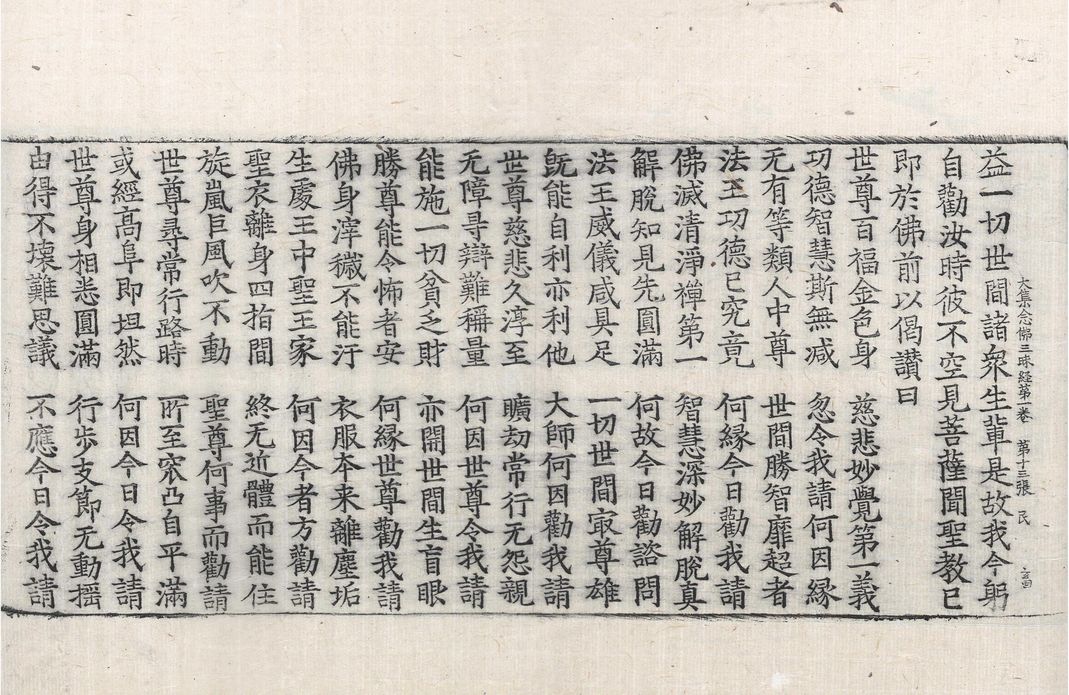 大集念佛三昧経第一卷 第十三張 民
益一切世間諸衆生輩是故我今躬
自勸汝時彼不空見菩薩聞聖教已
即於佛前以偈讃曰
世尊百福金色身 慈悲妙覺第一義
功德智慧斯無减 忽令我請何因縁
无有等類人中尊 世間勝智靡超者
法王功德已究竟 何縁今日勸我請
佛滅清淨禪第一 智慧深妙解脫真
解脫知見先圓滿 何故今日勸諮問
法王威儀咸具足 一切世間㝡尊雄
旣能自利亦利他 大師何因勸我請
世尊慈悲久淳至 曠劫常行无怨親
无障㝵辯難稱量 何因世尊令我請
能施一切貧乏財 亦開世間生盲眼
勝尊能令怖者安 何縁世尊勸我請
佛身滓穢不能汙 衣服本来離塵垢
生處王中聖王家 何因今者方勸請
聖衣離身四指間 終无近體而能住
旋嵐巨風吹不動 聖尊何事而勸請
世尊尋常行路時 所至窊凸自平滿
或經高阜即坦然 何因今日令我請
世尊身相悉圓滿 行步支節无動摇
由得不壞難思議 不應今日令我請